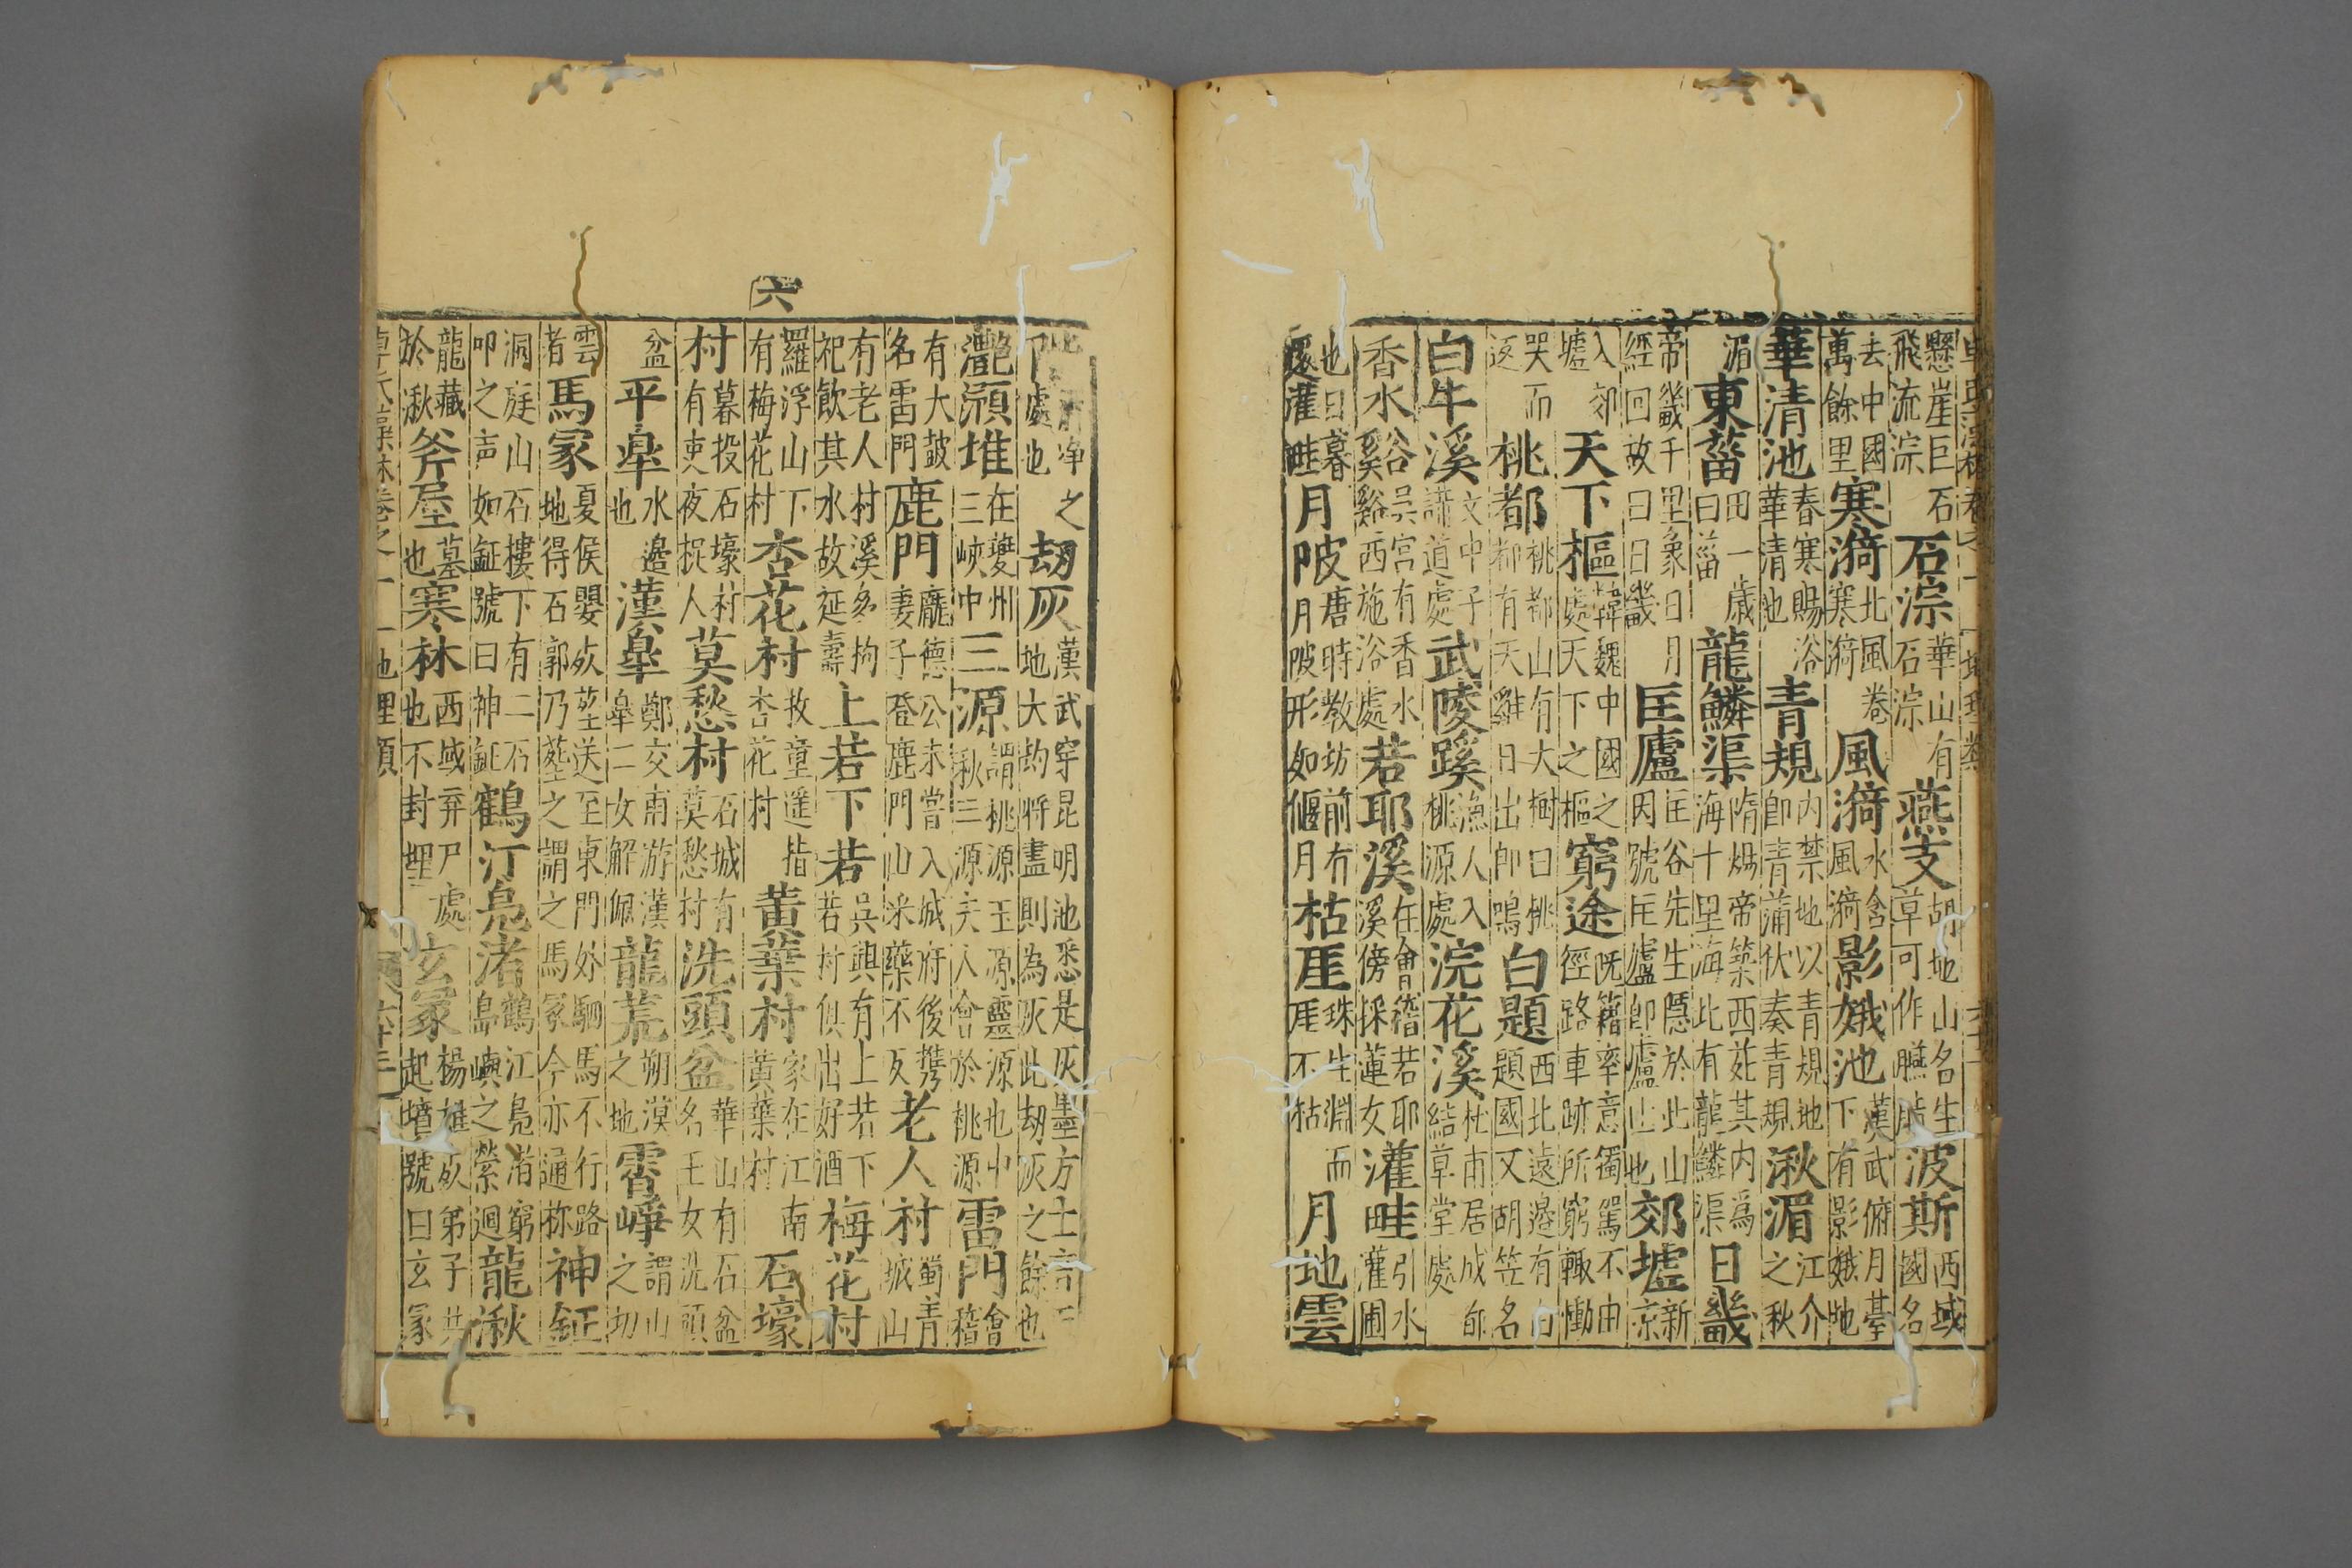 懸崖巨石飛流淙 石淙 華山有石淙 燕支 胡地山名生草可作臙脂 波斯 西域國名
去中國萬餘里 寒漪 北風卷寒漪 風漪 水含風漪 影娥池 漢武俯月臺下有影娥池
華清池 春寒賜浴華清池 青規 内禁地以青規地即青蒲伏奏青規 湫湄 江介之秋
湄 東菑 田一歲曰菑 龍鱗渠 隋煬帝築西苑其内爲海十里海北有龍鱗渠 日畿
帝畿千里象日月經回故曰日畿 匡廬 匡谷先生隱於此山因號匡廬即廬山也 郊墟 新凉
入郊墟 天下樞 韓魏中國之處天下之樞 窮途 阮籍率意獨駕不由徑路車跡所窮輒慟
哭而返 桃都 桃都山有大樹曰桃都有天雞日出即鳴 白題 西北遠邊有白題國又胡笠名
白牛溪 文中子講道處 武陵蹊 漁人入桃源處 浣花溪 杜甫居成都結草堂處
香水谿 吳宮有香水谿西施浴處 若耶溪 在會稽若耶溪傍採蓮女 灌畦 引水灌圃
也日暮還灌畦 月陂 唐時教坊前有月陂形如偃月 枯厓 珠生淵而厓不枯 月地雲
六
下處也 劫灰 漢武穿昆明池悉是灰墨方士言天地大劫將盡則為灰此劫灰之餘也
灧澦堆 在夔州三峽中 三源 謂桃源玉源靈源也中秋三源夫人會於桃源 雷門 會稽
有大鼓名雷門 鹿門 龐德公未嘗入城府後携妻子登鹿門山采藥不反 老人村 蜀青城山
有老人村溪多枸杞飲其水故延壽 上若下若 吳興有上若下若村村俱出好酒 梅花村
羅浮山下有梅花村 杏花村 牧童遥指杏花村 黄葉村 家在江南黄葉村 石壕
村 暮投石壕村有吏夜捉人 莫愁村 石城有莫愁村 洗頭盆 華山有石盆名玉女洗頭
盆 平臯 水邊也 漢臯 鄭交甫游漢臯二女解佩 龍荒 朔漠之地 霄崢 謂山之切
雲者 馬冢 夏侯嬰死塟送至東門外駟馬不行路地得石郭乃塟之謂之馬冢今亦通称 神鉦
洞庭山石樓下有二石叩之声如鉦號曰神鉦 鶴汀鳧渚 鶴江鳧渚窮島嶼之縈迴 龍湫
龍藏於湫 斧屋 墓也 寒林 西域弃尸處也不封埋 玄冢 楊雄死弟子共起墳號曰玄冢
卓氏藻林卷之一 地理類